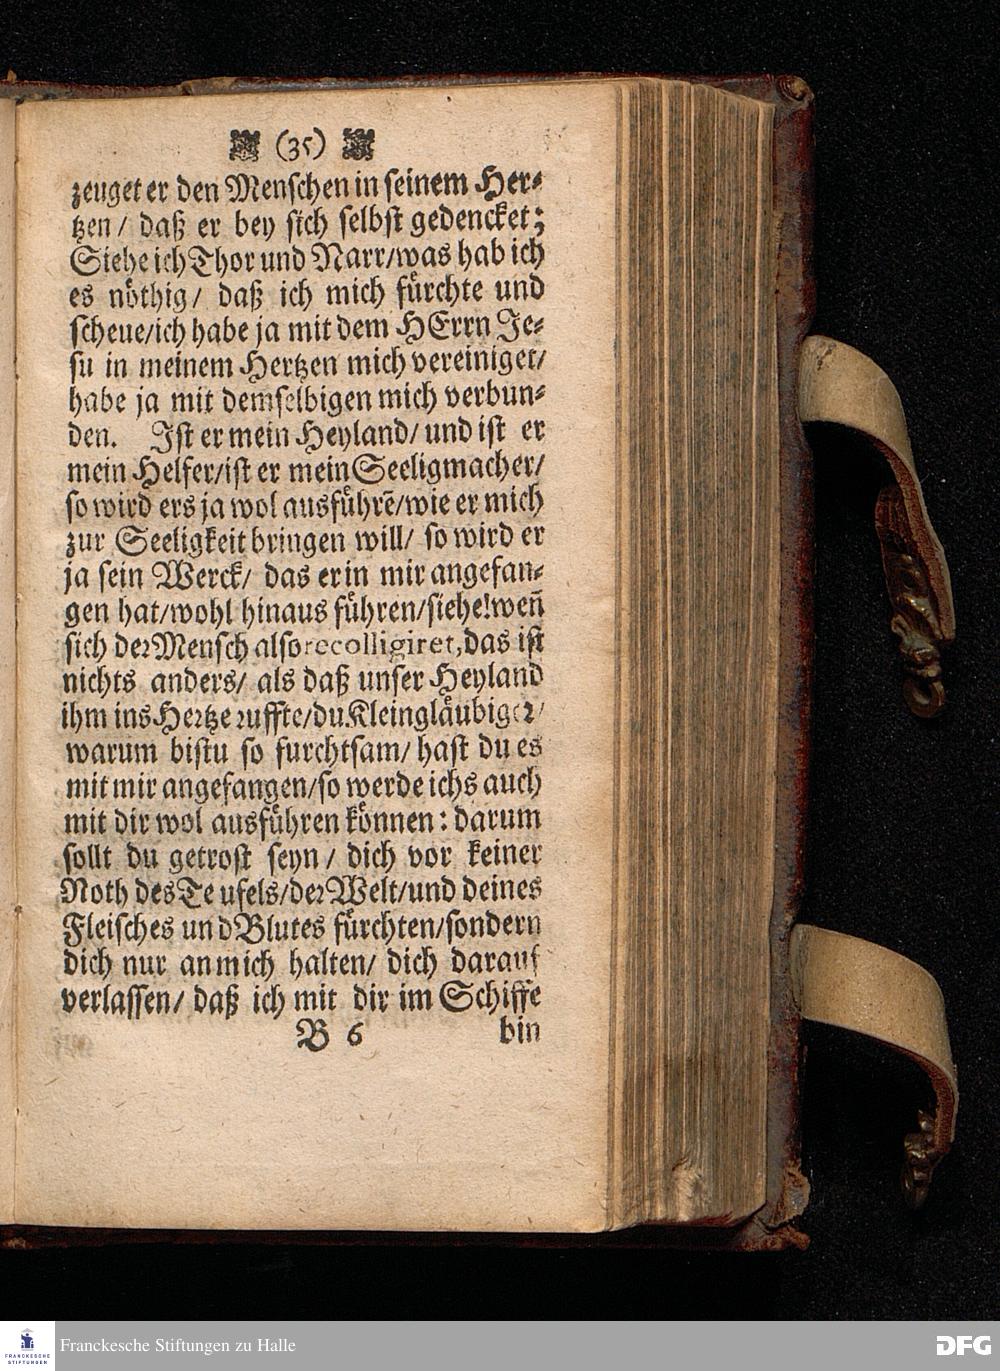 (35)
zeuget er den Menschen in seinem Her⸗
tzen / daß er bey sich selbst gedencket;
Siehe ich Thor und Narr/was hab ich
es nöthig/ daß ich mich fürchte und
scheue/ich habe ja mit dem HErrn Je⸗
su in meinem Hertzen mich vereiniget/
habe ja mit demselbigen mich verbun⸗
den. Ist er mein Heyland/ und ist er
mein Helfer/ist er mein Seeligmacher/
so wird ers ja wol ausführē/wie er mich
zur Seeligkeit bringen will/ so wird er
ja sein Werck/ das er in mir angefan⸗
gen hat/wohl hinaus führen/siehe!weñ
sich der Mensch also recolligiret, das ist
nichts anders/ als daß unser Heyland
ihm ins Hertze ruffte/du Kleingläubiger/
warum bistu so furchtsam/ hast du es
mit mir angefangen/so werde ichs auch
mit dir wol ausführen können: darum
sollt du getrost seyn / dich vor keiner
Noth des Teufels/der Welt/und deines
Fleisches und Blutes fürchten/sondern
dich nur an mich halten/ dich darauf
verlassen/ daß ich mit dir im Schiffe
B 6 bin
FRANCKESCHE STIFTUNGEN
Franckesche Stiftungen zu Halle
DFG